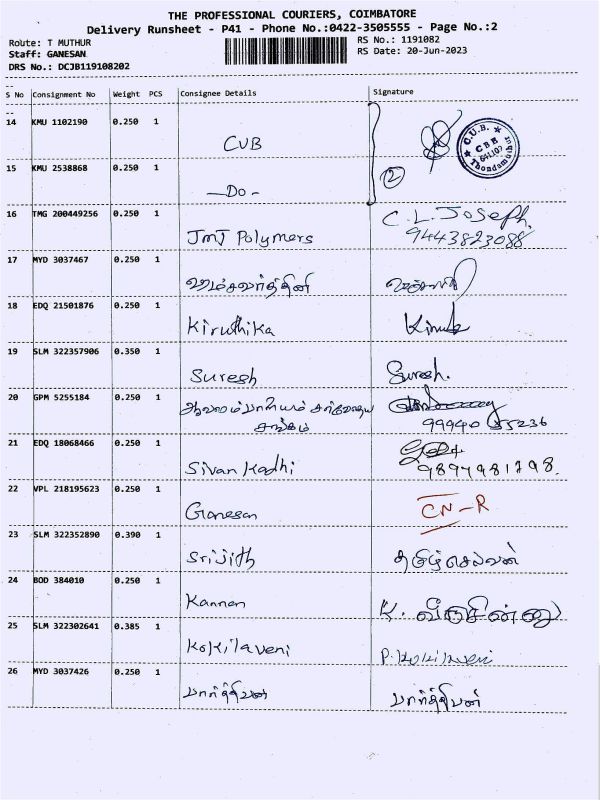 THE PROFESSIONAL COURIERS, COIMBATORE
Delivery Runsheet - P41 - Phone No.:0422-3505555 - Page No.:2
Route: T MUTHUR RS No.: 1191082
Staff: GANESAN RS Date: 20-Jun-2023
DRS No.: DCJB119108202
S No Consignment No Weight PCS Consignee Details Signature
14 KMU 1102190 0.250 1 CUB
C.U.B. CBE 641107 Thondamuthur
15 KMU 2538868 0.250 1 -Do- 2
16 TMG 200449256 0.250 1 JMJ Polymers C.L.Joseph.
9443823088
17 MYD 3037467 0.250 1 ஹம்சவர்த்தினி
18 EDQ 21501876 0.250 1 Kiruthika
19 SLM 322357906 0.350 1 Suresh Suresh.
20 GPM 5255184 0.250 1 ஆலாம்பாளையம் சர்வோதய
சங்கம் 99940 55236
21 EDQ 18068466 0.250 1 Sivan Kadhi
9894981798.
22 VPL 218195623 0.250 1 Ganesan CN-R
23 SLM 322352890 0.390 1 Srijith தமிழ்செல்வன்
24 BOD 384010 0.250 1 Kannan K.
25 SLM 322302641 0.385 1 Kokilaveni P.Kokilaveni
26 MYD 3037426 0.250 1 பார்த்திபன் பார்த்திபன்